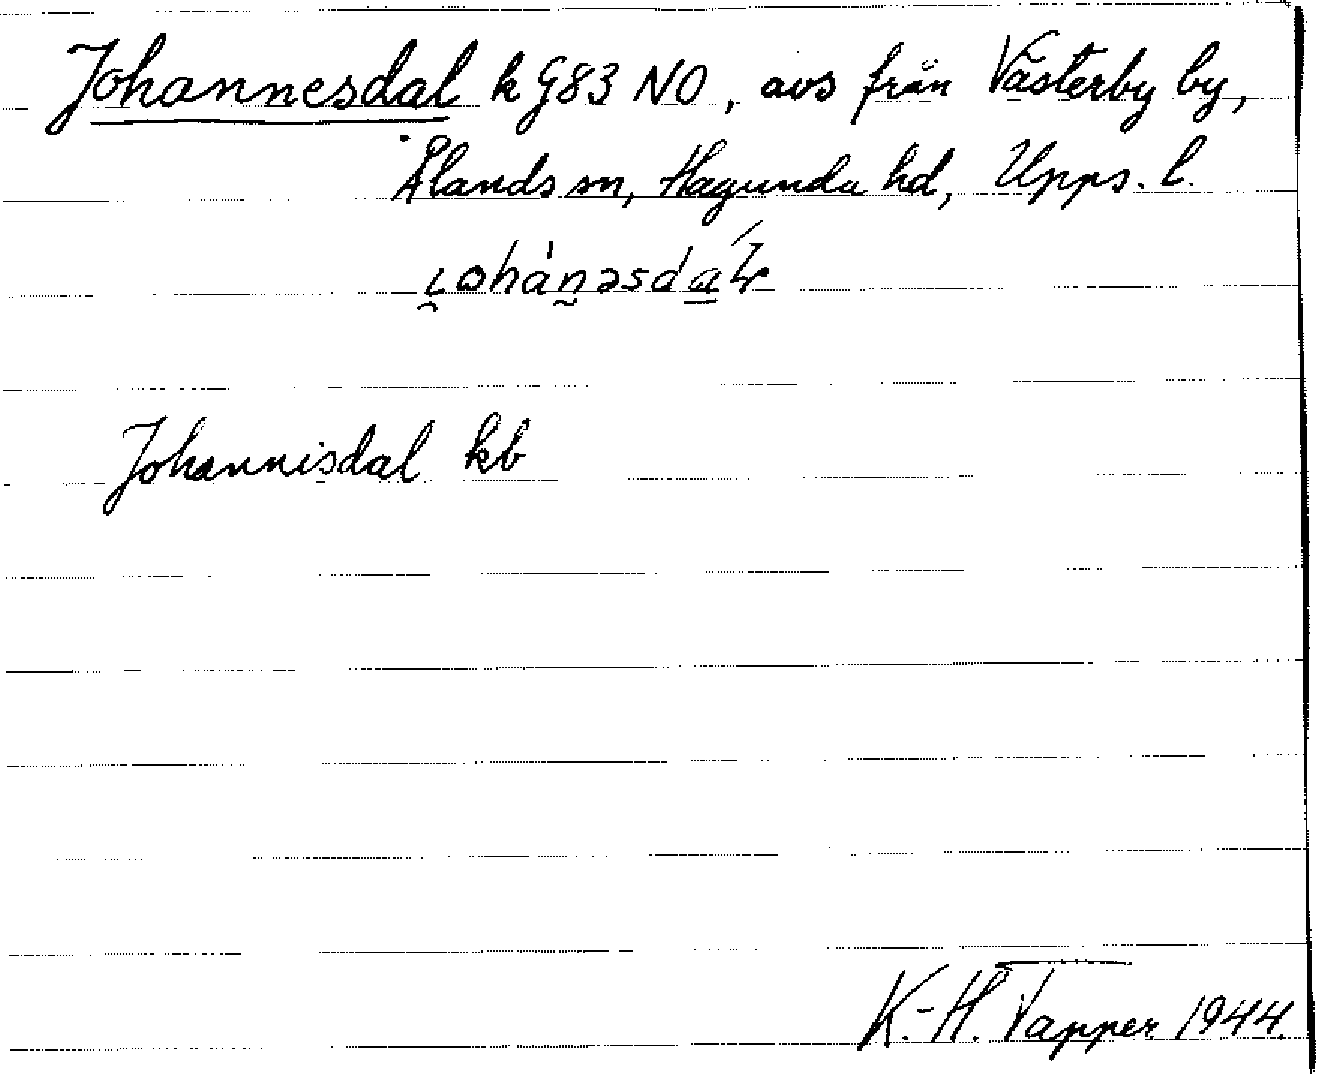 Johannesdal k G83 NO, avs från Västerby by,
Ålands sn, Hagunda hd, Upps. l.
Johannisdal kb
K.-H. Tapper 1944.